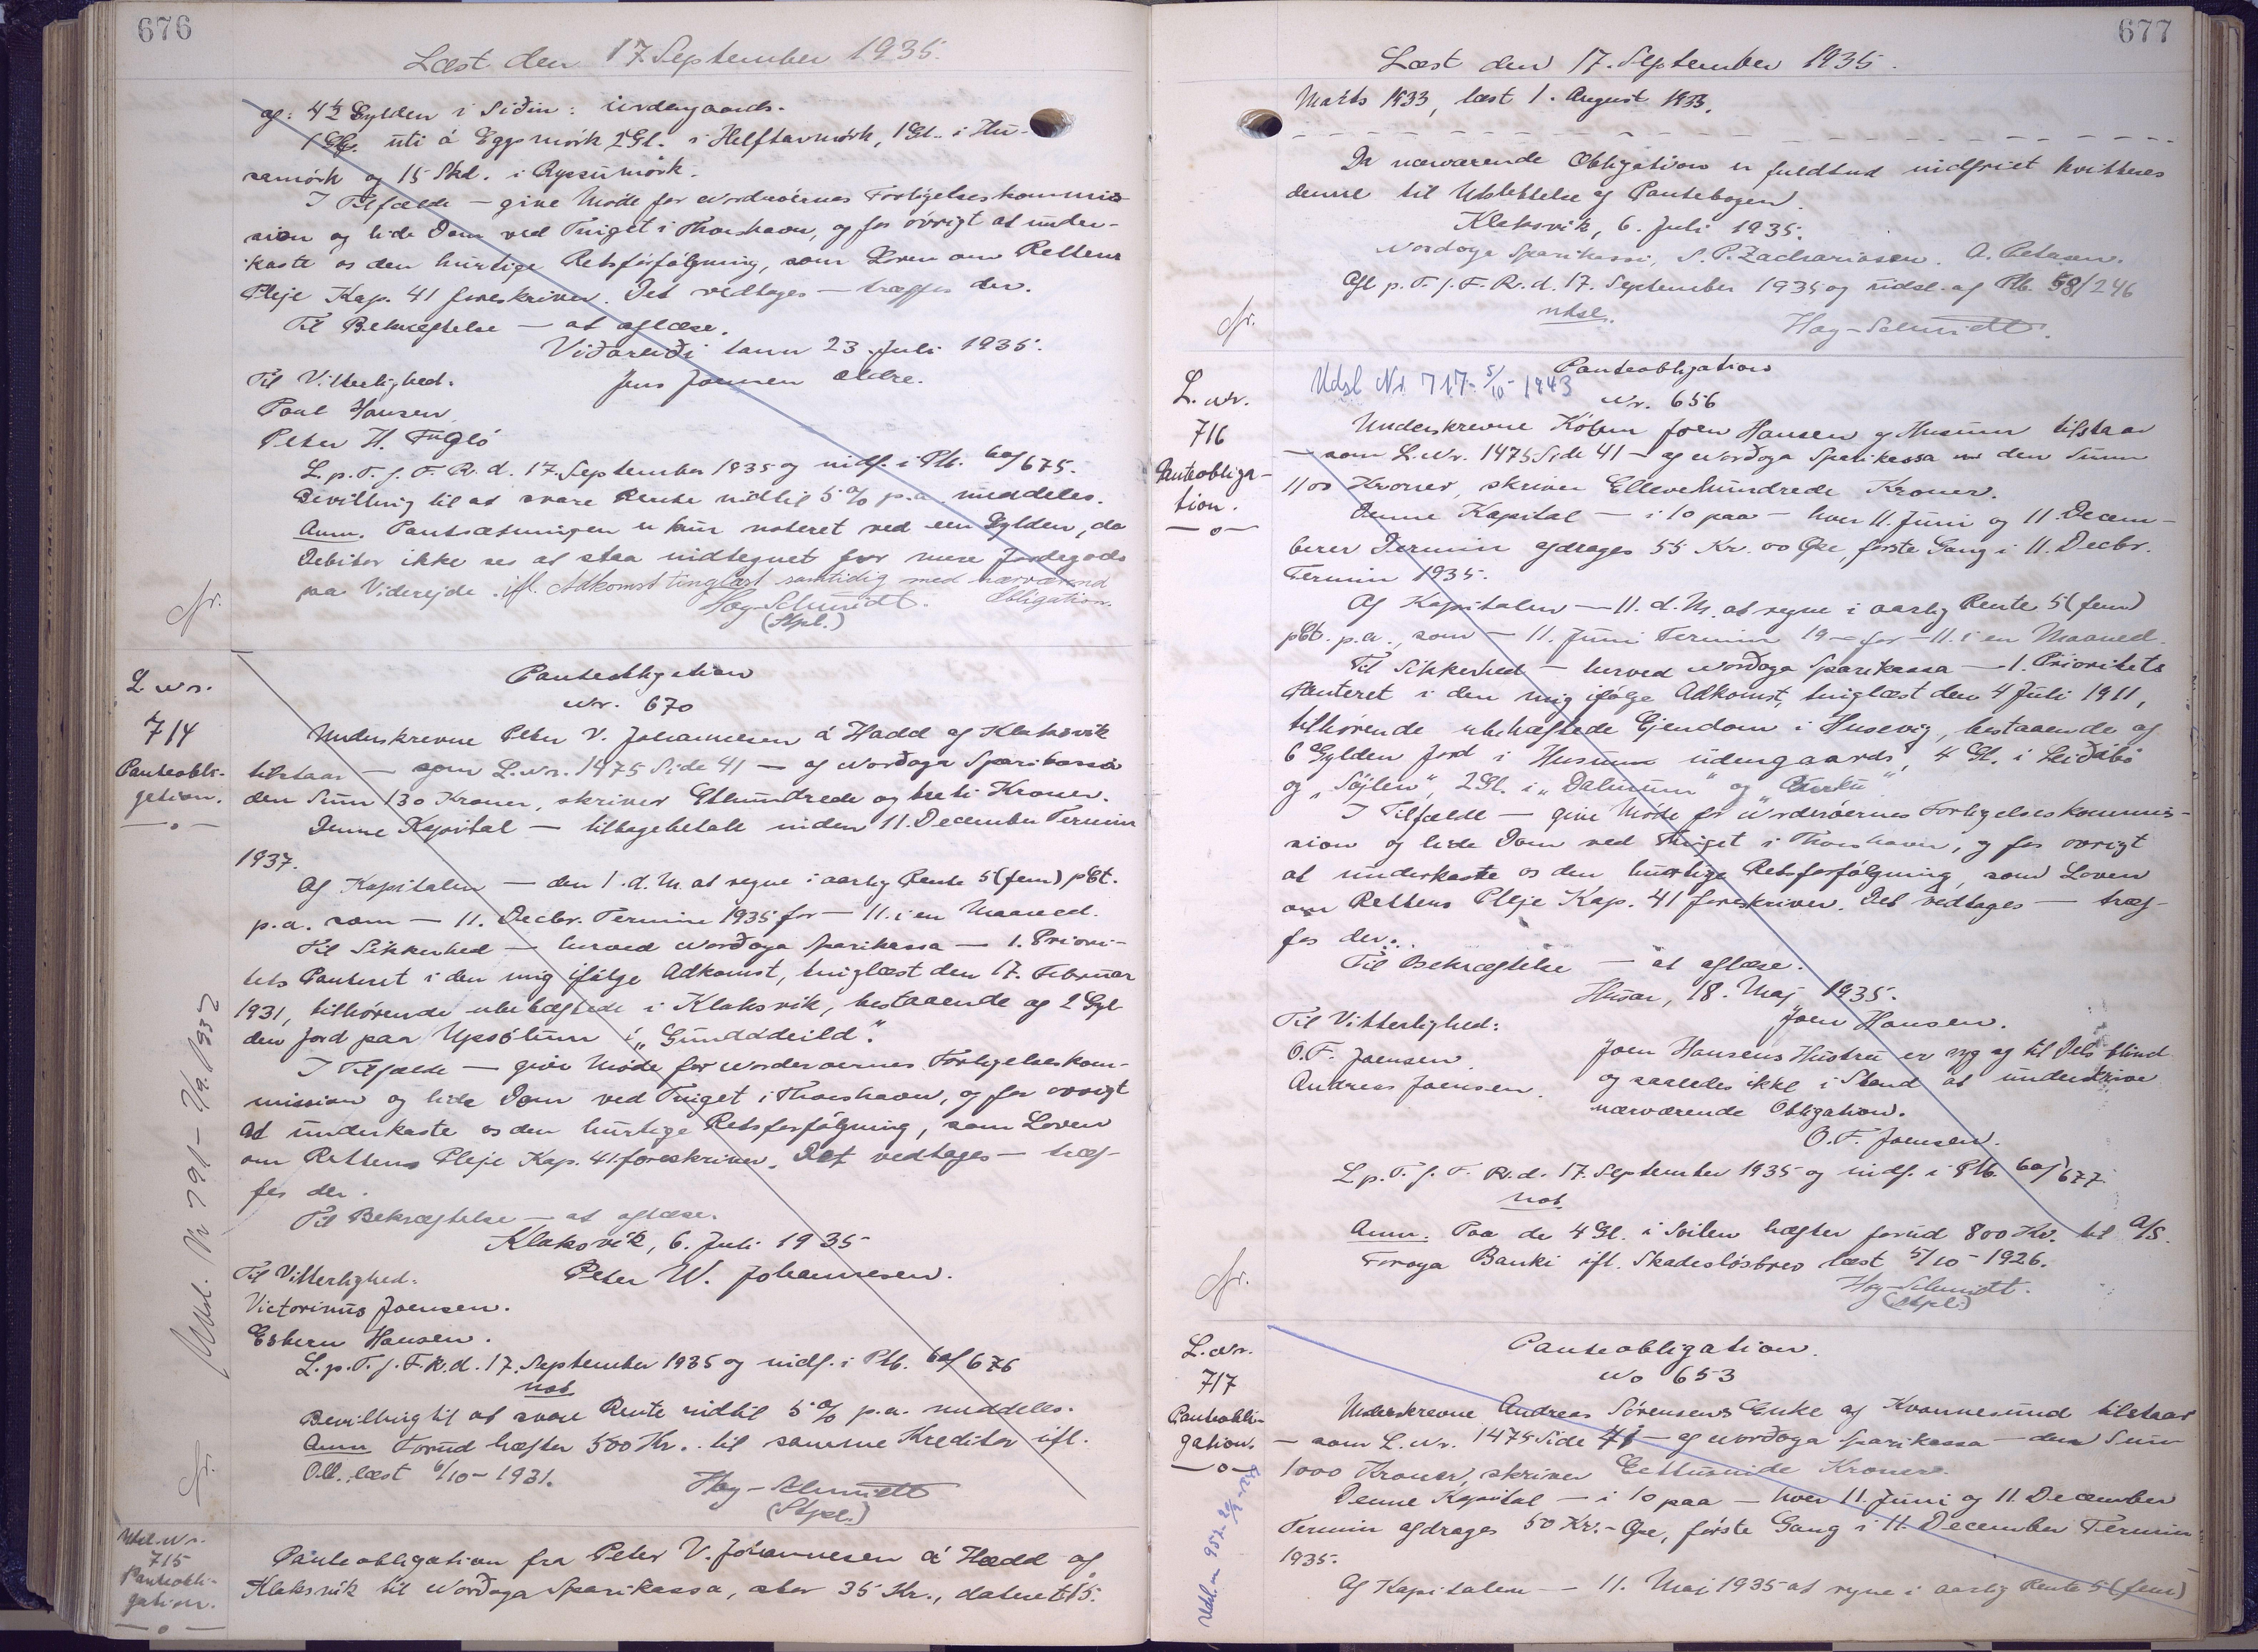 676
Læst den 17 September 1935.
af: 4½ Gylden i Siðin: indengaards.
uti á Eggsmörk 2 Gl. i Helftarmörk, 1 Gl. i Hu-
samörk og 15 Skd. i Ryssumörk.
I Tilfælde — give Møde for Norderöernes Forligelseskommis-
sion og lide Dom ved Tinget i Thorshavn, og for övrigt at under-
kaste os den hurtige Retsforfølgning, som Loven om Rettens
Pleje Kap. 41 foreskriver. Det vedtages — træffes der.
Til Bekræftelse — at aflæse.
Viðareiði tann 23. Juli 1935.
Til Vitterlighed.
Jens Joensen ældre.
Poul Hansen
Peter H. Fugló
L. p. T. f. F. R. d. 17. September 1935 og indf. i Ptb. 60f/675.
Bevilling til at svare Rente indtil 5 % p.a. meddeles.
Anm. Pantsætningen er kun noteret ved een Gylden, da
Debitor ikke ses at staa indtegnet for mere Jordegods
paa Viderejde. ifl. Adkomst tinglæst samtidig med nærværend
Obligation.
Høy-Schmidt.
(Stpl.)
L. Nr.
714
Panteobli-
gation.
Panteobligation
Nr. 670
Underskrevne Peter V. Johannesen á Hædd af Klaksvik
tilstaar — som L. Nr. 1475 Side 41 — af Norðoya Sparikassa
den Sum 130 Kroner, skriver Ethundrede og treti Kroner.
Denne Kapital — tilbagebetalt inden 11. December Termin
1937.
Af Kapitalen — den 1. d. M. at regne i aarlig Rente 5 (fem) pCt.
p.a. som — 11. Decbr. Termin 1935 for — 11. i en Maaned.
Til Sikkerhed — herved Norðoya Sparikassa — 1. Priori-
tets Panteret i den mig ifølge Adkomst, tinglæst den 17. Februar
1931, tilhörende ubehæftede i Klaksvik, bestaaende af 2 Gyl
den Jord paa Uppsölum í „Gunddeild".
I Tilfælde — give Møde for Norderøernes Forligelseskom-
mission og lide Dom ved Tinget i Thorshavn, og for övrigt
at underkaste os den hurtige Retsforfölgning, som Loven
om Rettens Pleje Kap. 41 foreskriver. Det vedtages — træf-
fes der.
Til Bekræftelse — at aflæse.
Klaksvik, 6. Juli 1935
Til Vitterlighed:
Peter W. Johannesen.
Victorinus Joensen.
Esbern Hansen.
L. p. T. f. F. R. d. 17. September 1935 og indf. i Ptb. 60f/676
not.
Bevilling til at svare Rente indtil 5 % p.a. meddeles.
Anm Forud hæfter 500 Kr. til samme Kreditor ifl.
Obl. læst 6/10 - 1931.
Høy-Schmidt
(Stpl.)
Udsl. Nr.
715
Panteobli-
gation.
Panteobligation fra Peter V. Johannesen á Hædd af
Klaksvik til Norðoya Sparikassa, stor 35 Kr., dateret 15.
677
Læst den 17. September 1935.
Marts 1933, læst 1. August 1933.
Da nærværende Obligation er fuldtud indfriet kvitteres
denne til Udslettelse af Pantebogen.
Klaksvik, 6. Juli 1935.
Nordoya Sparikassi, S. P. Zachariasen. A. Petersen.
Afl p. T. f. F. R. d. 17. September 1935 og udsl. af Ptb. 58/246
udsl.
Høy-Schmidt.
L. Nr.
716
Panteobliga-
tion.
Udsl Nr 717 - 5/10 - 1943
Panteobligation
Nr. 656
Underskrevne Köbm Joen Hansen af Husum tilstaar
— som L. Nr. 1475 Side 41 — af Norðoya Sparikassa den Sum
1100 Kroner, skriver Ellevehundrede Kroner.
Denne Kapital — i 10 paa — hver 11. Juni og 11. Decem-
berer Termin afdrages 55 Kr. 00 Øre, første Gang i 11. Decbr.
Termin 1935.
Af Kapitalen — 11. d. M. at regne i aarlig Rente 5 (fem)
pCt. p.a., som — 11. Juni Termin 19 — for — 11. i en Maaned.
Til Sikkerhed — herved Norðoya Sparikassa — 1. Prioritets
Panteret i den mig ifølge Adkomst, tinglæst den 4 Juli 1911,
tilhörende ubehæftede Ejendom i Husevig, bestaaende af
6 Gylden Jord i Husum indengaards, 4 Gl. i
og „Söjlen", 2 Gl. i „Dalinum" og
I Tilfælde — give Møde for Norderöernes Forligelseskommis-
sion og lide Dom ved Tinget i Thorshavn, og for övrigt
at underkaste os den hurtige Retsforfølgning, som Loven
om Rettens Pleje Kap. 41 foreskriver. Det vedtages — træf-
fes der.
Til Bekræftelse — at aflæse.
Husar, 18. Maj 1935.
Til Vitterlighed:
Joen Hansen.
O. F. Joensen
Andreas Joensen.
Joen Hansens Hustru er syg og til Dels blind
og saaledes ikke i Stand at underskrive
nærværende Obligation.
O. F. Joensen.
L. p. T. f. F. R. d. 17. September 1935 og indf. i Ptb. 60f/677
not.
Anm. Paa de 4 Gl. i Soilen hæfter forud 800 Kr. til A/S.
Foroya Banki ifl. Skadesløsbrev læst 5/10 - 1926.
Høy-Schmidt.
(Stpl.)
L. Nr.
717
Panteobli-
gation.
Panteobligation.
No 653
Underskrevne Andreas Sörensens Enke af Kvannesund tilstaar
— som L. Nr. 1475 Side 41 — af Norðoya Sparikassa — den Sum
1000 Kroner, skriver Eettusinde Kroner.
Denne Kapital — i 10 paa — hver 11. Juni og 11. December
Termin afdrages 50 Kr. - Øre, første Gang i 11. December Termin
1935.
Af Kapitalen — 11. Maj 1935 at regne i aarlig Rente 5 (fem)